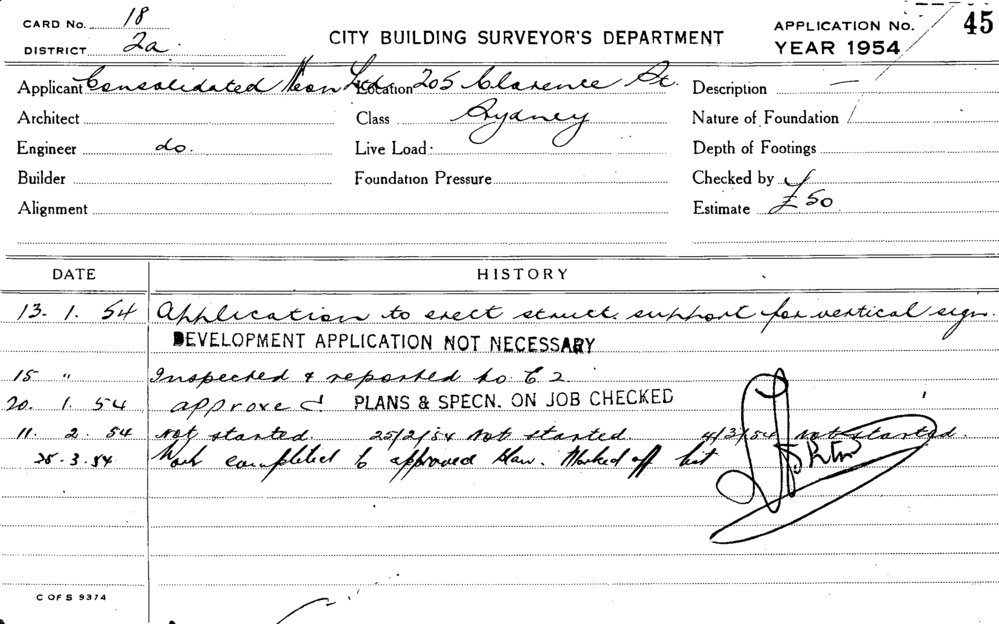 CARD No. 18
DISTRICT 2a.
CITY BUILDING SURVEYOR'S DEPARTMENT
APPLICATION No. 45
YEAR 1954
Applicant Consolidated Neon Ltd. Location 205 Clarence St. Description —
Architect Class Sydney Nature of Foundation
Engineer do. Live Load: Depth of Footings
Builder Foundation Pressure Checked by
Alignment Estimate £50
DATE HISTORY
13. 1. 54 Application to erect struct. support for vertical sign.
DEVELOPMENT APPLICATION NOT NECESSARY
15 " Inspected & reported to C.2.
20. 1. 54 approved PLANS & SPECN. ON JOB CHECKED
11. 2. 54 Not started. 25/2/54 Not started. 4/3/54 Not started.
25.3.54 Work completed to approved plan. Marked off list
C OF S 9374